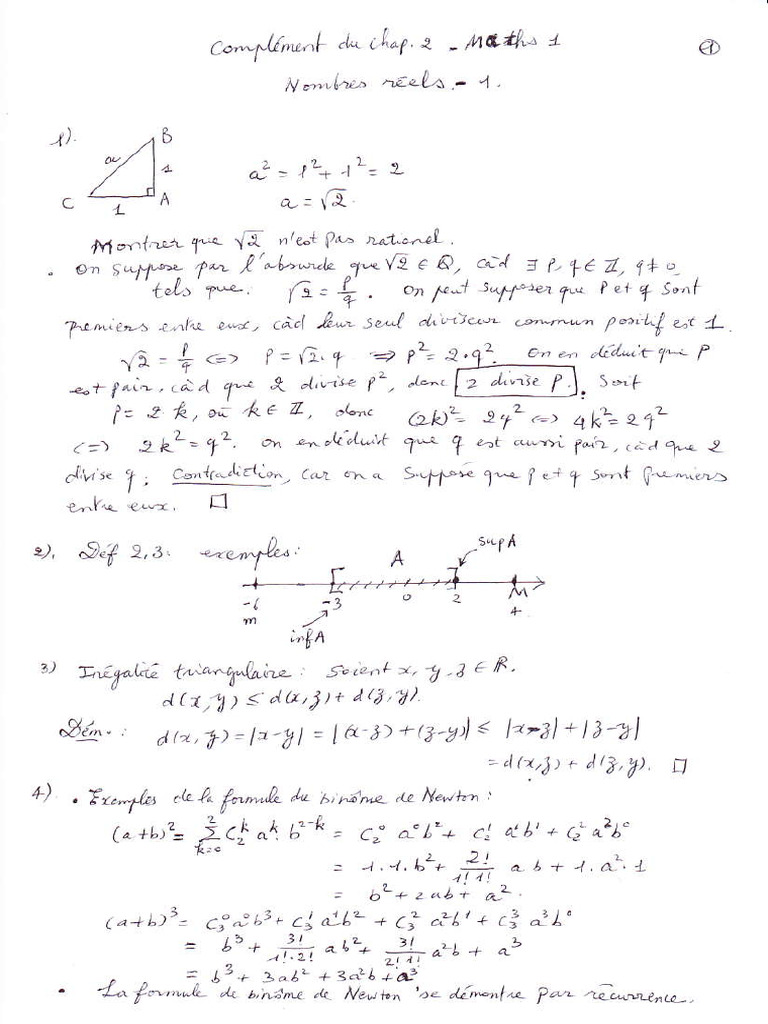 Complément du chap. 2 - Maths 1
①
Nombres réels. - 1.
1).
B
a
1
C
1
A
a² = 1² + 1² = 2
a = √2.
Montrer que √2 n'est pas rationel.
. On suppose par l'absurde que √2 ∈ Q, càd ∃ p, q ∈ Z, q ≠ 0
tels que: √2 = p/q. On peut supposer que p et q sont
premiers entre eux, càd leur seul diviseur commun positif est 1.
√2 = p/q <=> p = √2·q => p² = 2·q². On en déduit que p
est pair, càd que 2 divise p², donc 2 divise p. Soit
p = 2k, où k ∈ Z, donc (2k)² = 2q² <=> 4k² = 2q²
<=> 2k² = q². On en déduit que q est aussi pair, càd que 2
divise q; Contradiction, car on a supposé que p et q sont premiers
entre eux. □
2). Déf 2,3: exemples:
A
sup A
-6
-3
0
2
M
4
m
inf A
3) Inégalité triangulaire: Soient x, y, z ∈ R.
d(x, y) ≤ d(x, z) + d(z, y).
Dém.: d(x, y) = |x-y| = |(x-z) + (z-y)| ≤ |x-z| + |z-y|
= d(x,z) + d(z, y). □
4). • Exemples de la formule du binôme de Newton:
(a+b)² = ∑_{k=0}^{2} C₂ᵏ aᵏ b²⁻ᵏ = C₂⁰ a⁰b² + C₂¹ a¹b¹ + C₂² a²b⁰
= 1·1·b² + 2!/(1!1!) ab + 1·a²·1
= b² + 2ab + a².
(a+b)³ = C₃⁰a⁰b³ + C₃¹ a¹b² + C₃² a²b¹ + C₃³ a³b⁰
= b³ + 3!/(1!·2!) ab² + 3!/(2!1!) a²b + a³
= b³ + 3ab² + 3a²b + a³
• La formule de binôme de Newton se démontre par récurrence.